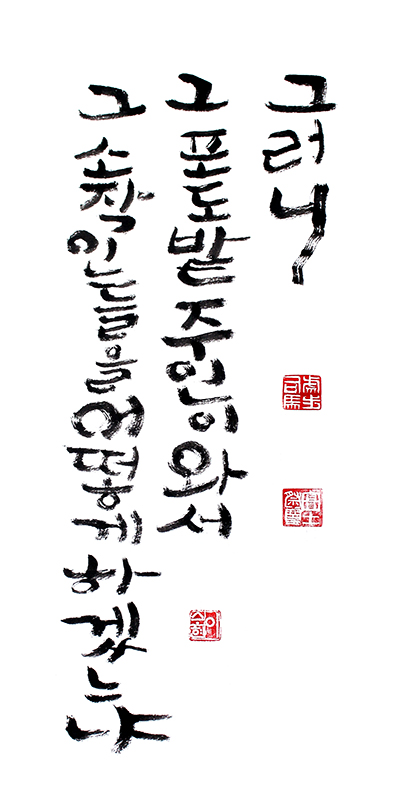 그러니
그 포도밭 주인이 와서
그 소작인들을 어떻게 하겠느냐